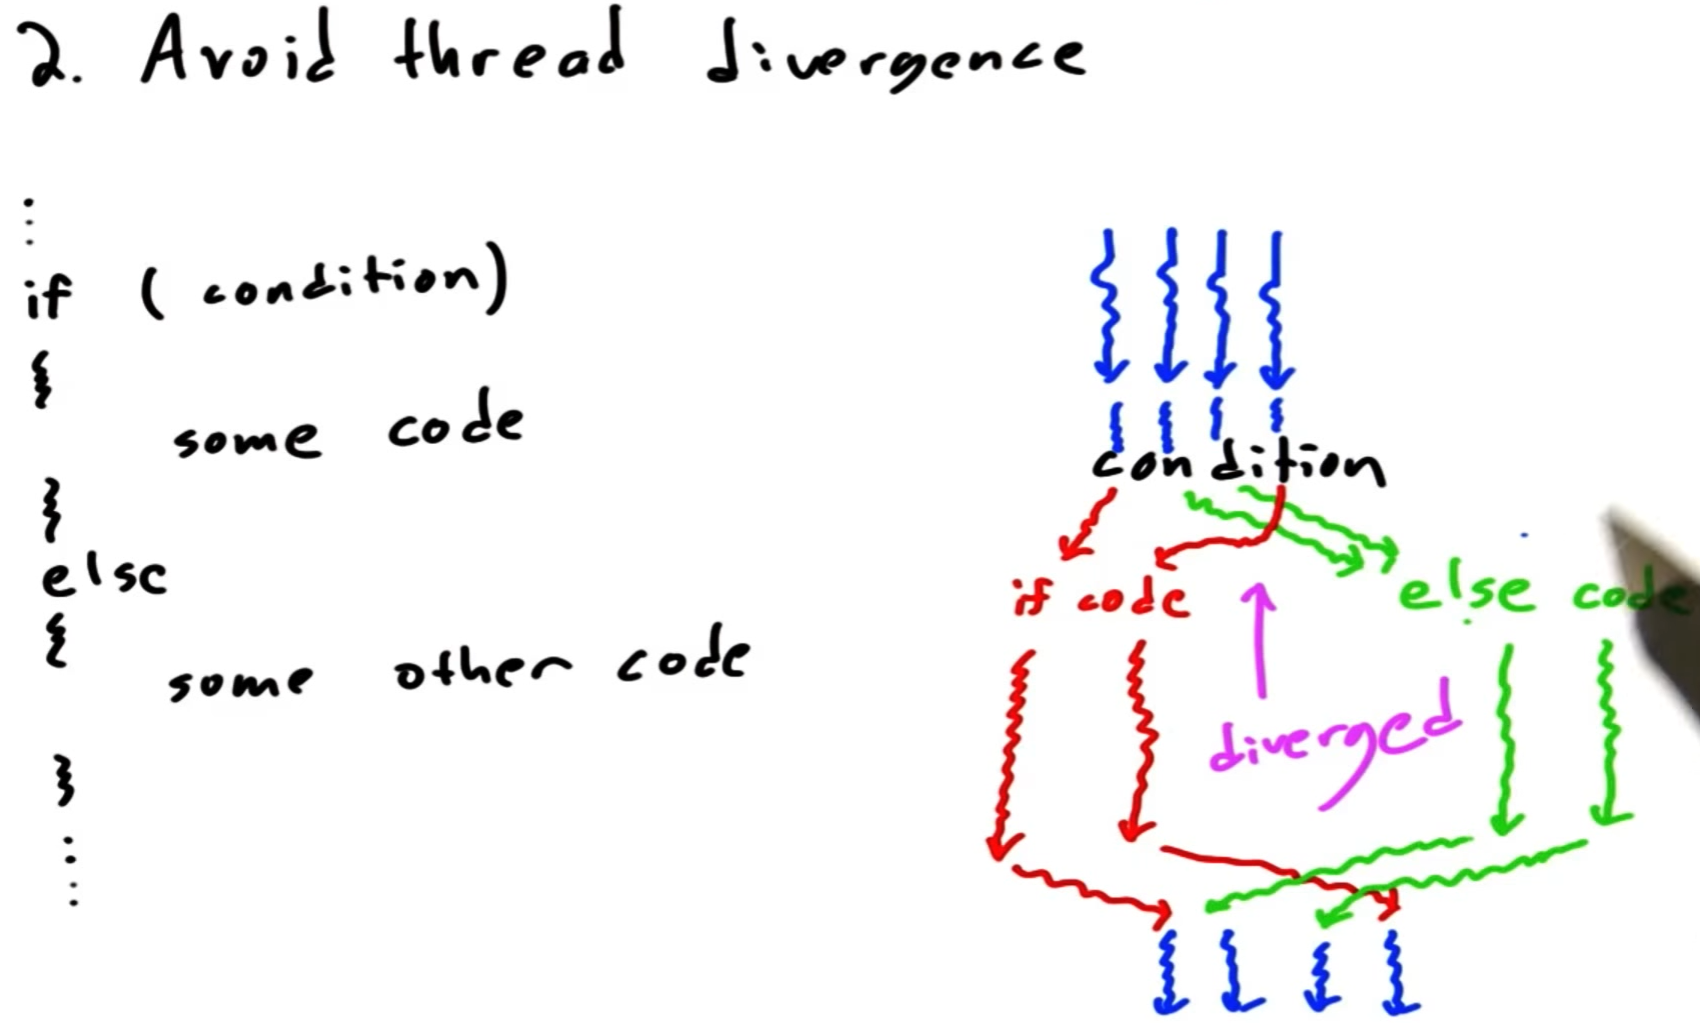 2. Avoid thread divergence
⋮
if ( condition)
{
some code
}
else
{
some other code
}
⋮
condition
if code
else code
diverged